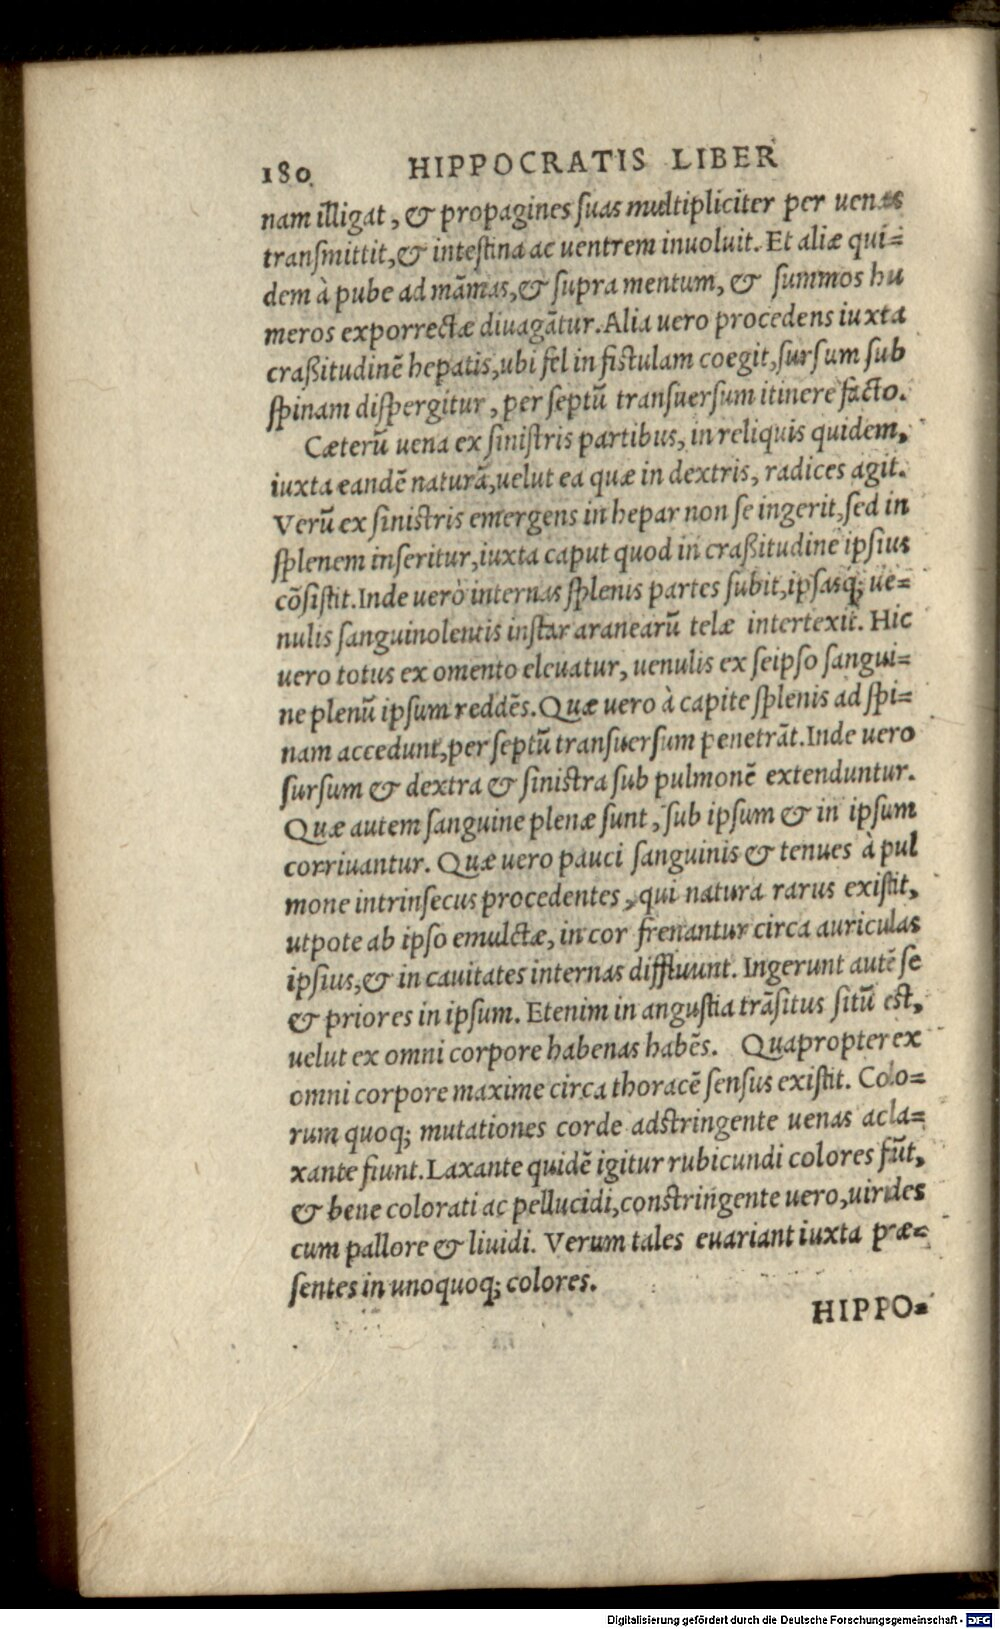 180 HIPPOCRATIS LIBER
nam illigat, & propagines ſuas multipliciter per uenas
tranſmittit, & inteſtina ac uentrem inuoluit. Et aliæ qui=
dem à pube ad mãmas, & ſupra mentum, & ſummos hu
meros exporrectæ diuagãtur. Alia uero procedens iuxta
craßitudinẽ hepatis, ubi fel in fiſtulam coegit, ſurſum ſub
ſpinam diſpergitur, per ſeptũ tranſuerſum itinere facto.
Cæterũ uena ex ſiniſtris partibus, in reliquis quidem,
iuxta eandẽ naturã, uelut ea quæ in dextris, radices agit.
Verũ ex ſiniſtris emergens in hepar non ſe ingerit, ſed in
ſplenem inſeritur, iuxta caput quod in craßitudine ipſius
cõſiſtit. Inde uero internas ſplenis partes ſubit, ipſasq; ue=
nulis ſanguinolentis inſtar aranearũ telæ intertexit. Hic
uero totus ex omento eleuatur, uenulis ex ſeipſo ſangui=
ne plenũ ipſum reddẽs. Quæ uero à capite ſplenis ad ſpi=
nam accedunt, per ſeptũ tranſuerſum penetrãt. Inde uero
ſurſum & dextra & ſiniſtra ſub pulmonẽ extenduntur.
Quæ autem ſanguine plenæ ſunt, ſub ipſum & in ipſum
corriuantur. Quæ uero pauci ſanguinis & tenues à pul
mone intrinſecus procedentes, qui natura rarus exiſtit,
utpote ab ipſo emulctæ, in cor frenantur circa auriculas
ipſius, & in cauitates internas diffluunt. Ingerunt autẽ ſe
& priores in ipſum. Etenim in anguſtia trãſitus ſitũ eſt,
uelut ex omni corpore habenas habẽs. Quapropter ex
omni corpore maxime circa thoracẽ ſenſus exiſtit. Colo=
rum quoq; mutationes corde adſtringente uenas ac la=
xante fiunt. Laxante quidẽ igitur rubicundi colores fũt,
& bene colorati ac pellucidi, conſtringente uero, uirides
cum pallore & liuidi. Verum tales euariant iuxta præ=
ſentes in unoquoq; colores.
HIPPO=
Digitalisierung gefördert durch die Deutsche Forschungsgemeinschaft - DFG